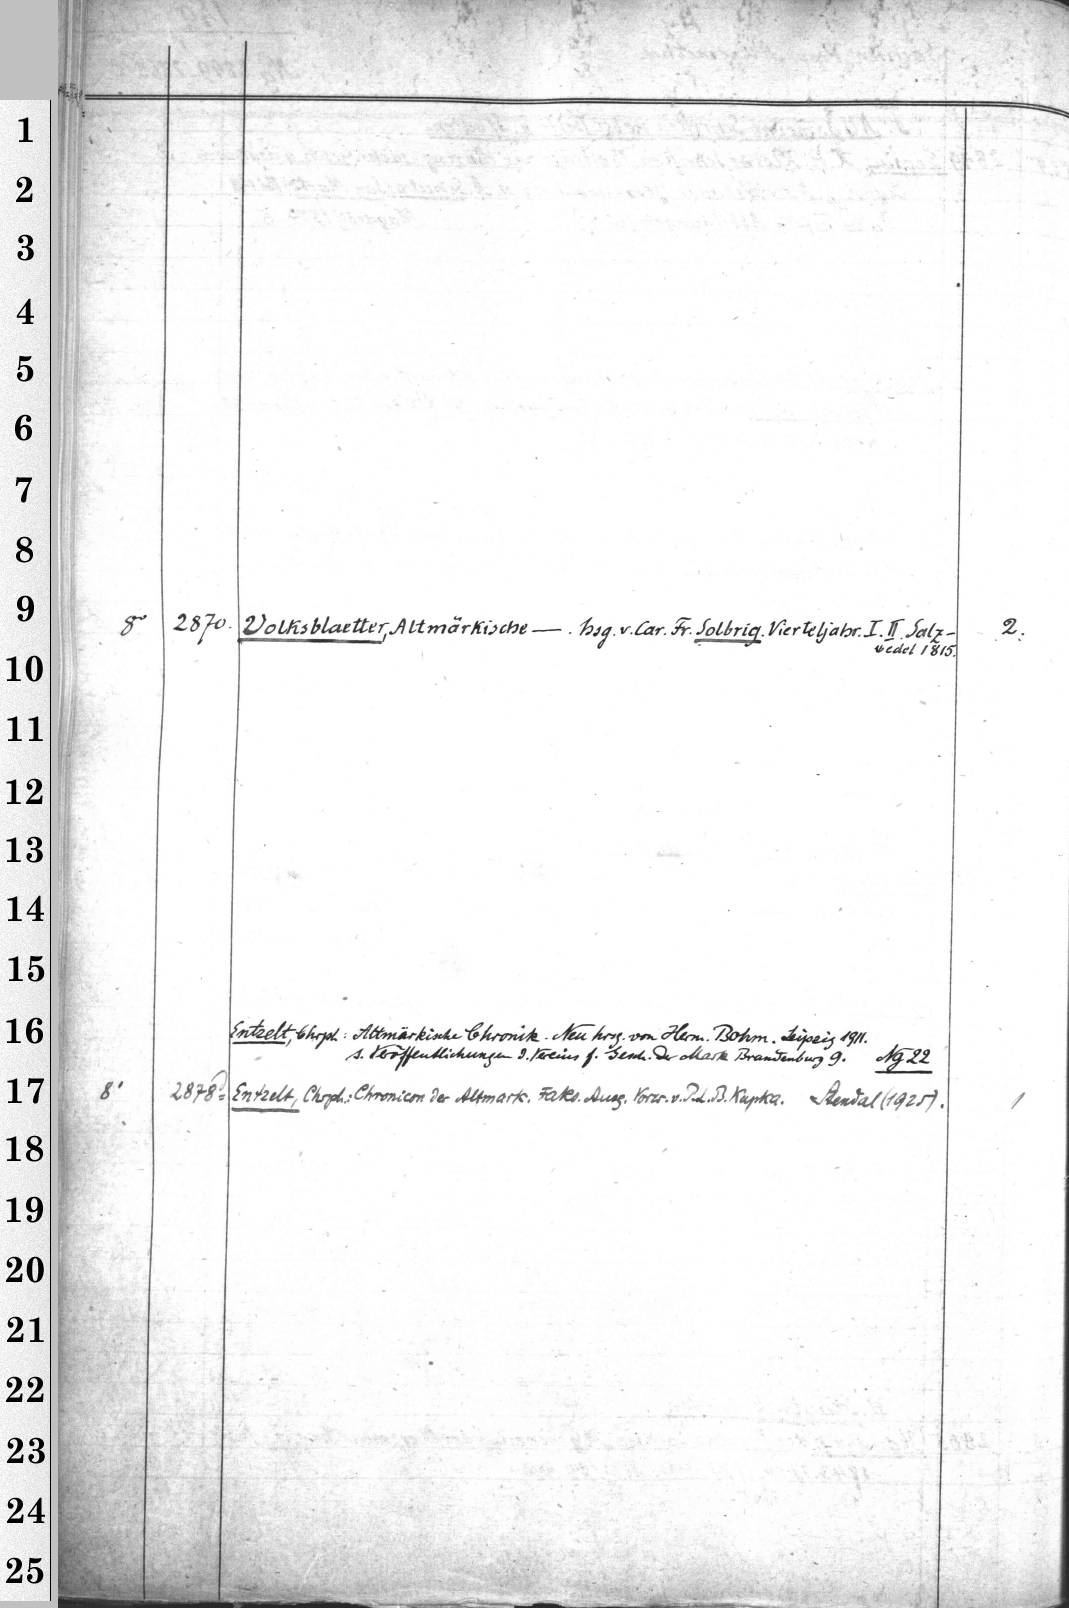 1
2
3
4
5
6
7
8
9
8° 2870. Volksblaetter, Altmärkische —. hsg. v. Car. Fr. Solbrig. Vierteljahr. I. II. Salz- 2.
wedel 1815.
10
11
12
13
14
15
16
Entzelt, Chrph.: Altmärkische Chronik. Neu hrsg. von Herm. Bohm. Leipzig 1911.
s. Veröffentlichungen d. Vereins f. Gesch. der Mark Brandenburg 9. Ng 22
17
8° 2878 Entzelt, Chrph.: Chronicon der Altmark. Faks. Ausg. Vorw. v. P.L.B. Kupka. Stendal (1925). 1
18
19
20
21
22
23
24
25